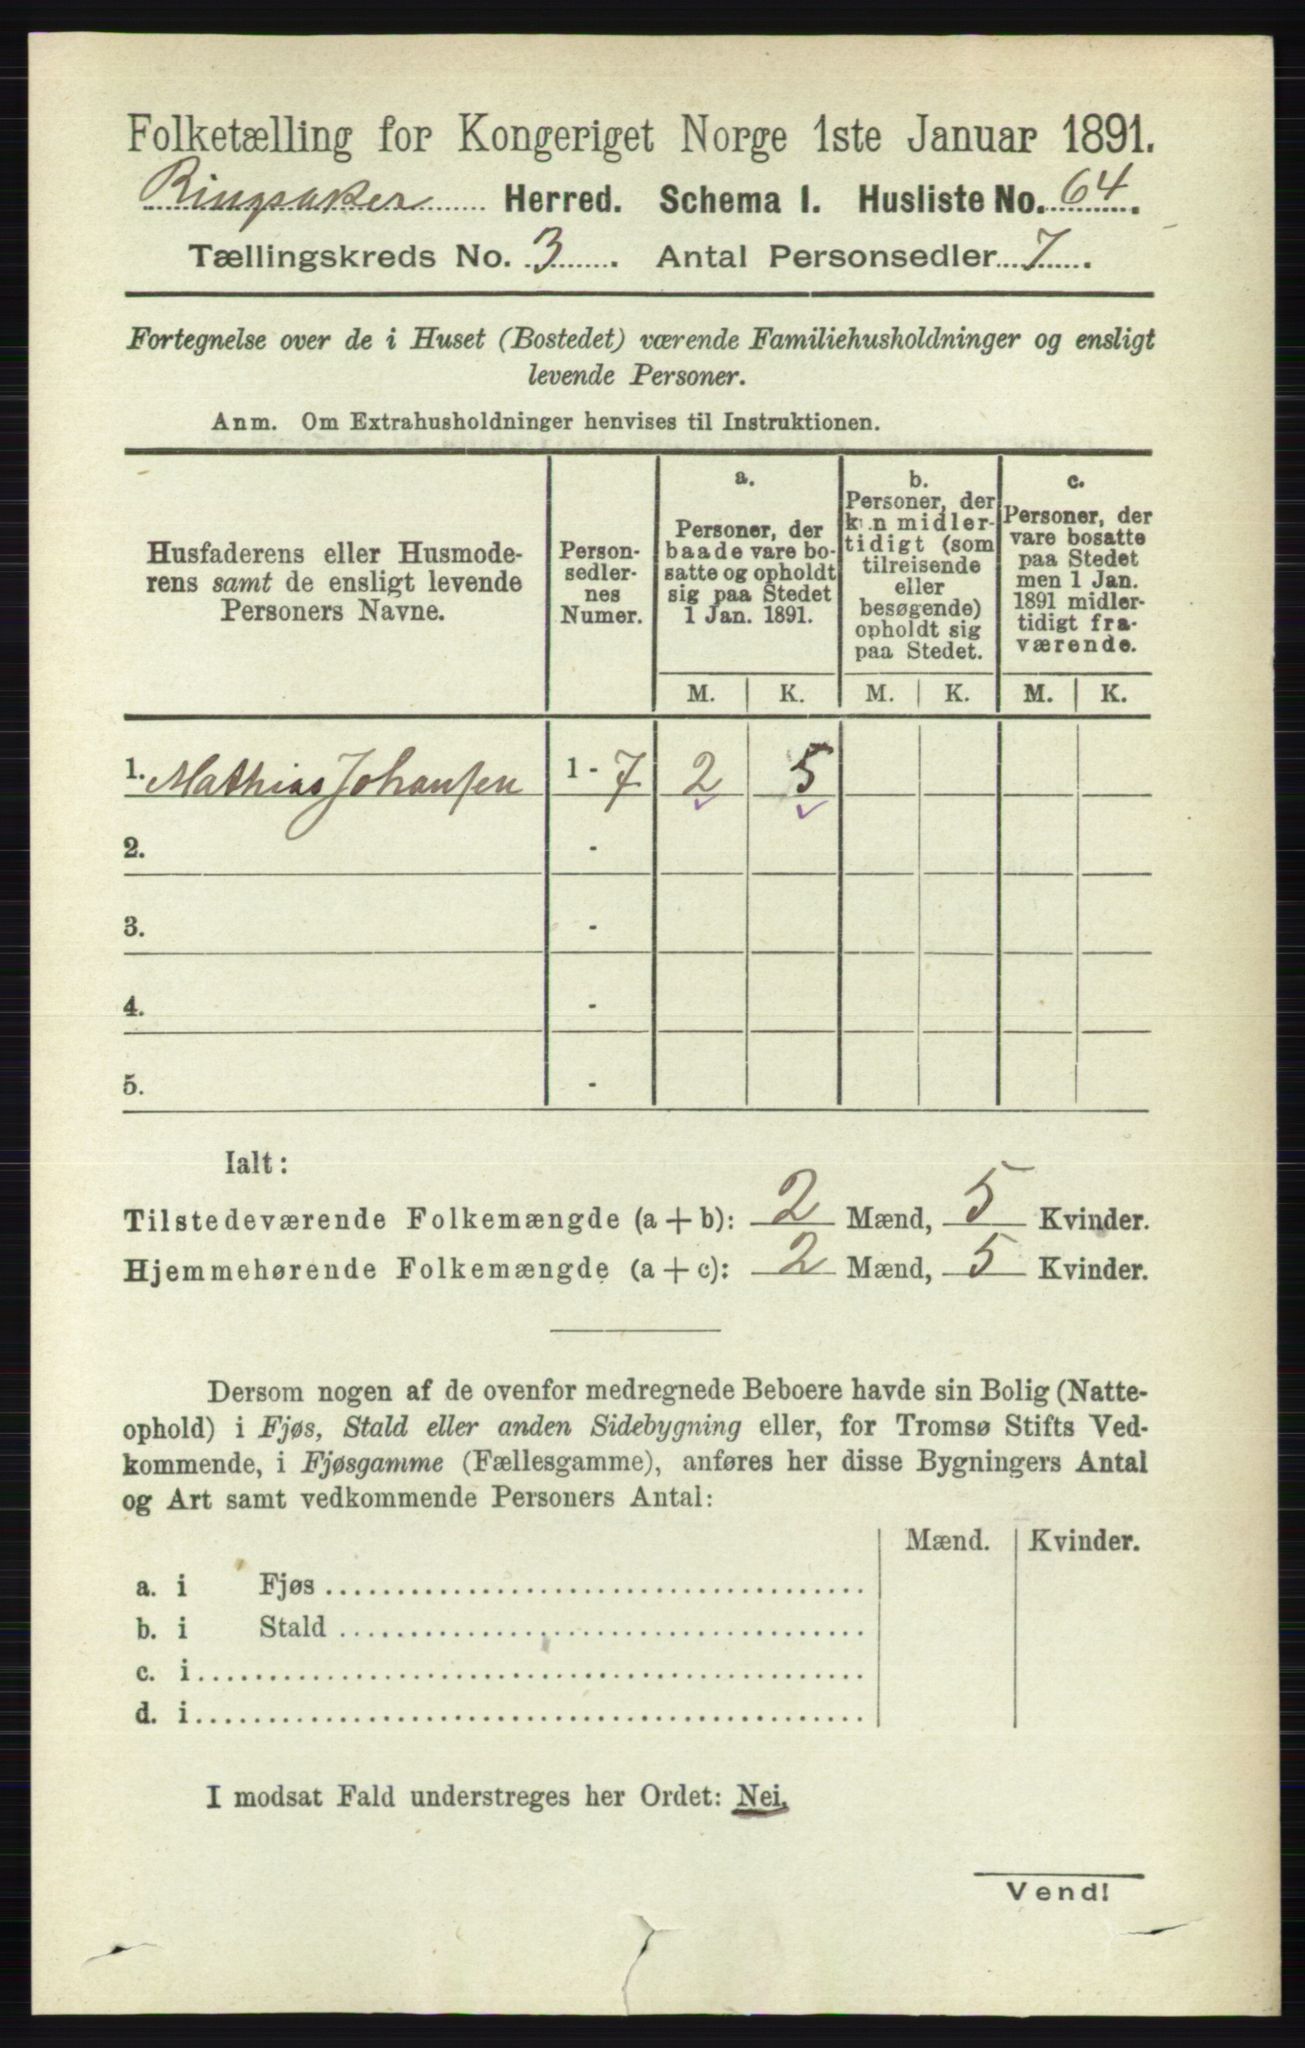 Folketælling for Kongeriget Norge 1ste Januar 1891.
Ringsaker Herred. Schema I. Husliste No. 64.
Tællingskreds No. 3. Antal Personsedler 7.
Fortegnelse over de i Huset (Bostedet) værende Familiehusholdninger og ensligt
levende Personer.
Anm. Om Extrahusholdninger henvises til Instruktionen.
Husfaderens eller Husmode-
rens samt de ensligt levende
Personers Navne.
Person-
sedler-
nes
Numer.
a.
Personer, der
baade vare bo-
satte og opholdt
sig paa Stedet
1 Jan. 1891.
b.
Personer, der
kun midler-
tidigt (som
tilreisende
eller
besøgende)
opholdt sig
paa Stedet.
c.
Personer, der
vare bosatte
paa Stedet
men 1 Jan.
1891 midler-
tidigt fra-
værende.
M. K. M. K. M. K.
1. Mathias Johansen 1 - 7 2 5
2. -
3. -
4. -
5. -
Ialt:
Tilstedeværende Folkemængde (a + b): 2 Mænd, 5 Kvinder.
Hjemmehørende Folkemængde (a + c): 2 Mænd, 5 Kvinder.
Dersom nogen af de ovenfor medregnede Beboere havde sin Bolig (Natte-
ophold) i Fjøs, Stald eller anden Sidebygning eller, for Tromsø Stifts Ved-
kommende, i Fjøsgamme (Fællesgamme), anføres her disse Bygningers Antal
og Art samt vedkommende Personers Antal:
Mænd. Kvinder.
a. i Fjøs
b. i Stald
c. i
d. i
I modsat Fald understreges her Ordet: Nei.
Vend!